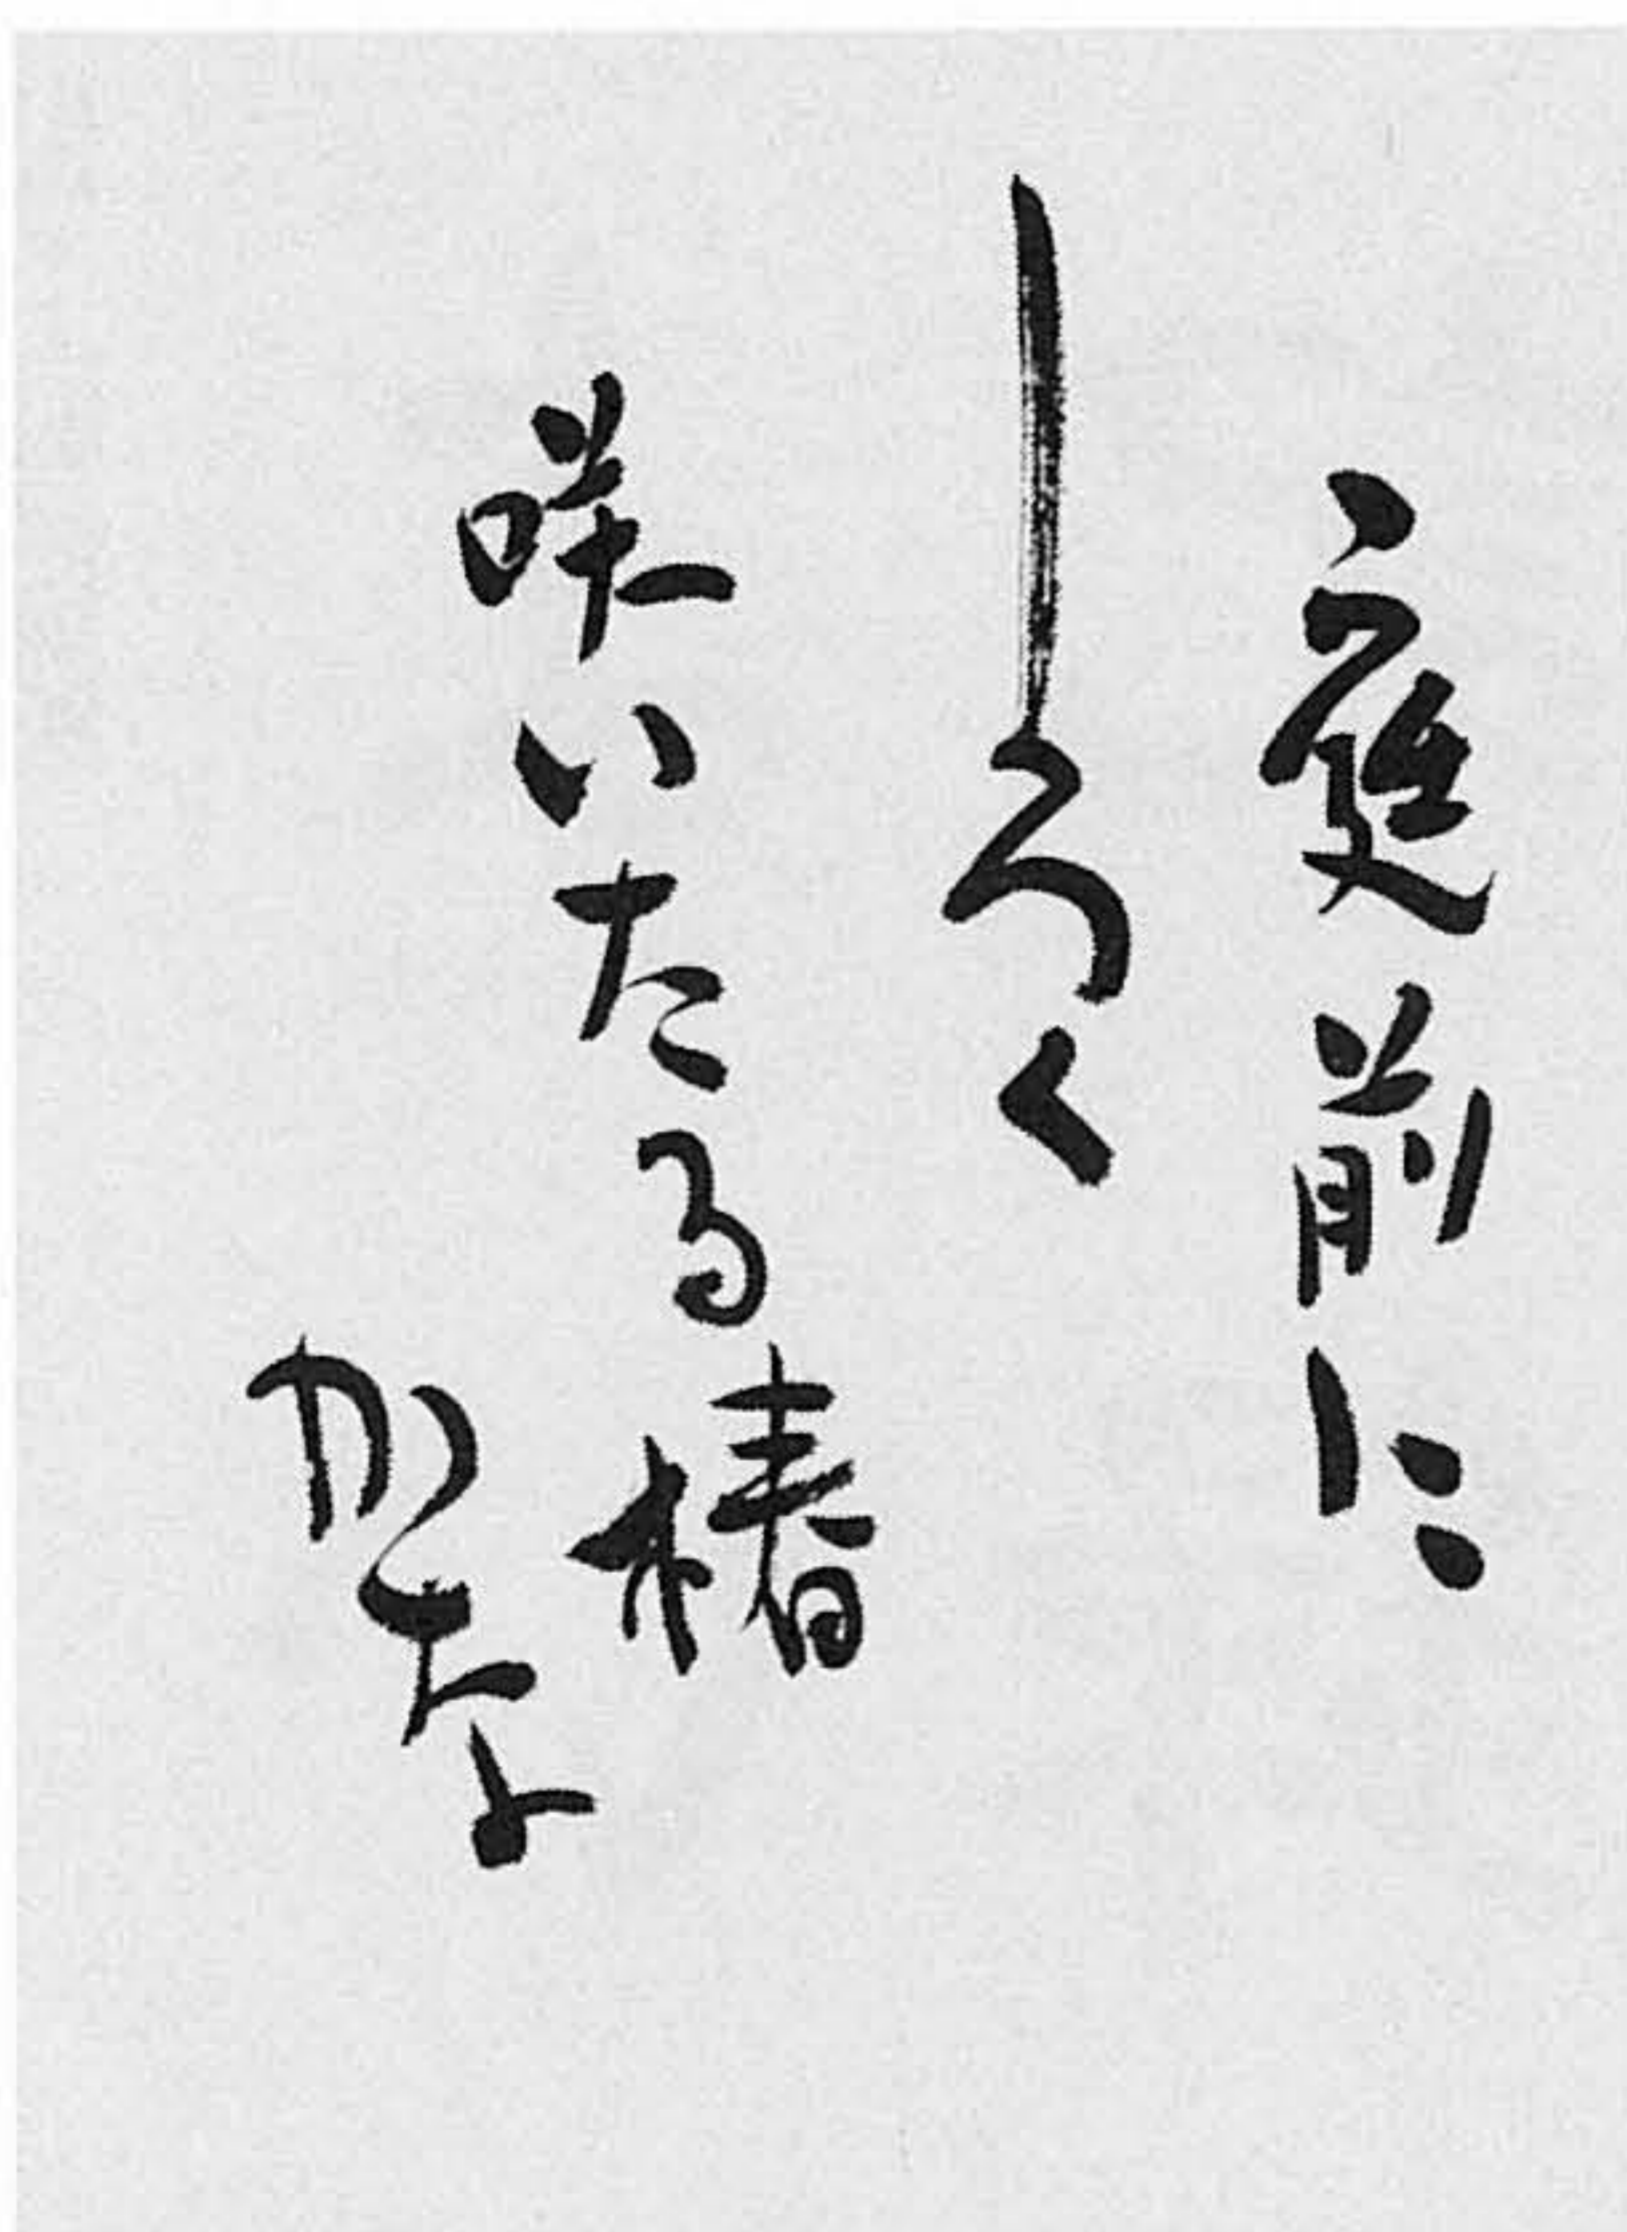 庭前に
しろく
咲いたる椿
かなよ